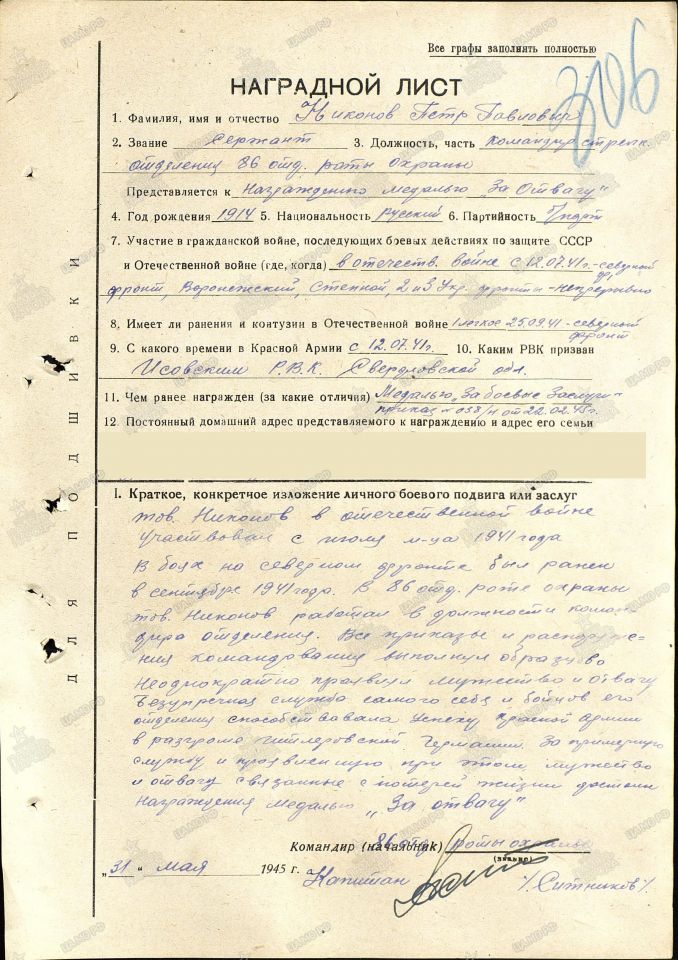 Все графы заполнять полностью
3106
НАГРАДНОЙ ЛИСТ
1. Фамилия, имя и отчество Никонов Петр Павлович
2. Звание Сержант 3. Должность, часть Командир стрелк.
отделения 86 отд. роты охраны
Представляется к Награждению медалью „За Отвагу"
4. Год рождения 1914 5. Национальность русский 6. Партийность б/парт
7. Участие в гражданской войне, последующих боевых действиях по защите СССР
и Отечественной войне (где, когда) в отечеств. войне с 12.07.41г.-северный
фронт, Воронежский, Степной, 2 и 3 Укр. фронты - непрерывно
8. Имеет ли ранения и контузии в Отечественной войне 1 легкое 25.09.41 - северный
фронт
9. С какого времени в Красной Армии с 12.07.41г. 10. Каким РВК призван
Исовским Р.В.К. Свердловской обл.
11. Чем ранее награжден (за какие отличия) Медалью „За боевые Заслуги"
приказ № 058/н от 22.02.45г.
12. Постоянный домашний адрес представляемого к награждению и адрес его семьи
I. Краткое, конкретное изложение личного боевого подвига или заслуг
тов. Никонов в отечественной войне
участвовал с июля м-ца 1941 года
В боях на северном фронте был ранен
в сентябре 1941 года. В 86 отд. роте охраны
тов. Никонов работал в должности коман-
дира отделения. Все приказы и распоряже-
ния командования выполнял образцово
Неоднократно проявлял мужество и отвагу
Безупречная служба самого себя и бойцов его
отделения способствовала успеху Красной армии
в разгроме гитлеровской Германии. За примерную
службу и проявленную при этом мужество
и отвагу связанные с потерей жизни достоин
Награждения медалью „За отвагу"
Командир (начальник) 86 отд. роты охраны
(звание)
„31" мая 1945 г. Капитан /Ситников/.
ДЛЯ ПОДШИВКИ
ЦАМО.РФ